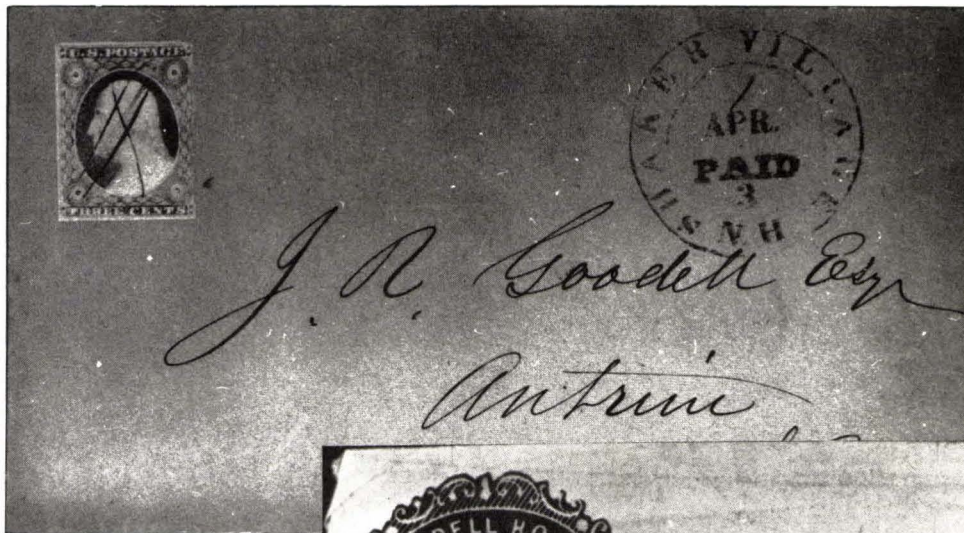 U.S. POSTAGE
THREE CENTS
SHAKER VILLAGE
APR.
PAID
3
N H
J. R. Goodell Esqr
Antrim
DELL HO